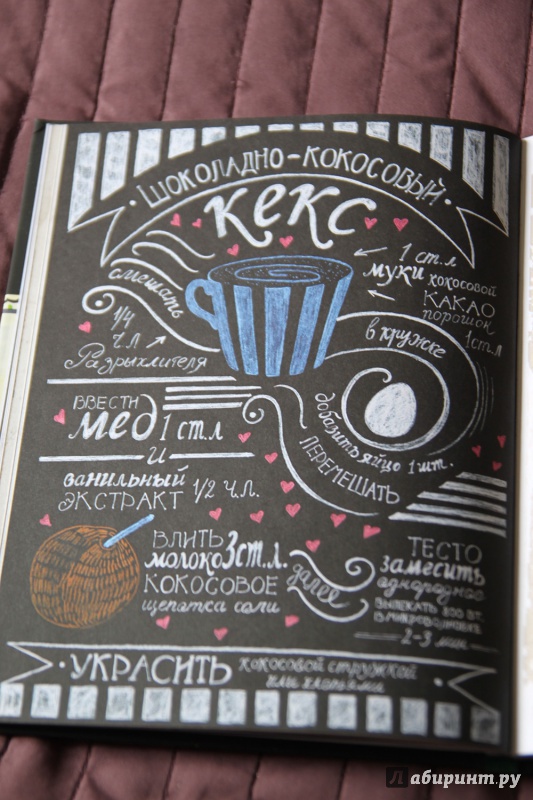 ШОКОЛАДНО-КОКОСОВЫЙ
кекс
смешать
1 ст.л
муки кокосовой
КАКАО
порошок
1 ст.л
1/4
ч.л
Разрыхлителя
в кружке
ВВЕСТИ
мед 1 ст.л
и
ванильный
ЭКСТРАКТ 1/2 ч.л.
добавить яйцо 1 шт.
ПЕРЕМЕШАТЬ
ВЛИТЬ
молоко 3 ст.л.
КОКОСОВОЕ
щепотка соли
далее
ТЕСТО
замесить
однородное
ВЫПЕКАТЬ 800 ВТ.
В МИКРОВОЛНОВКЕ
2-3 мин
УКРАСИТЬ кокосовой стружкой
или хлопьями
Лабиринт.ру